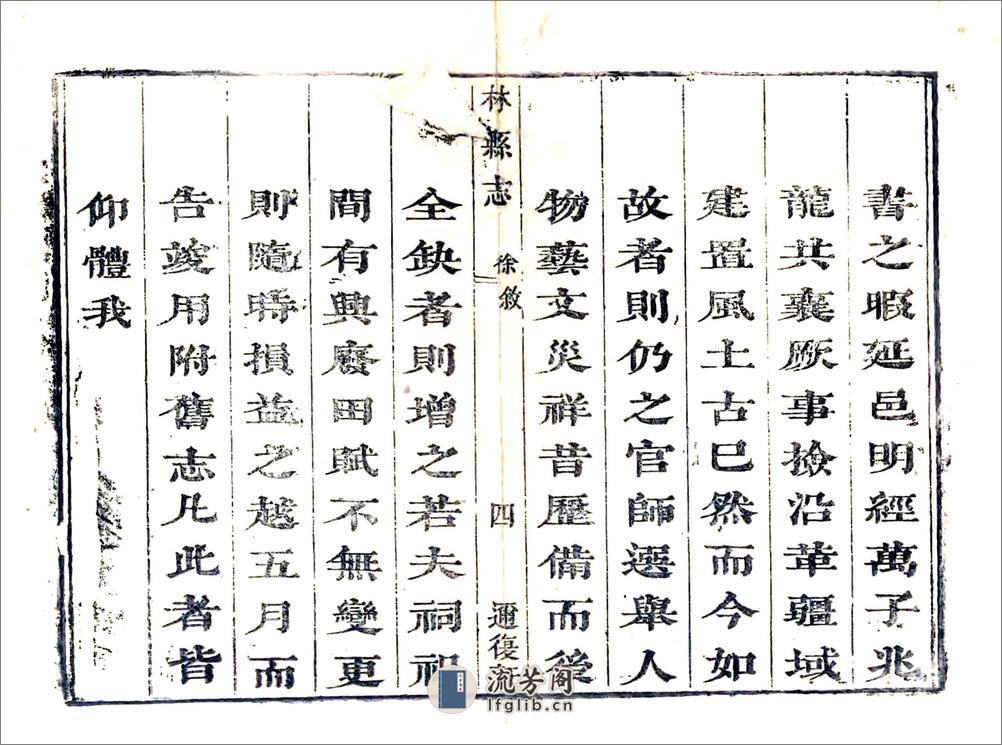 書之暇延邑明經萬子兆
龍共襄厥事撿沿革疆域
建置風土古已然而今如
故者則仍之官師選舉人
物藝文災祥昔歷備而後
林縣志 徐敘 四 邇復
全缺者則增之若夫祠祀
間有興廢田賦不無變更
則隨時損益之越五月而
告竣用附舊志凡此者皆
仰體我
流芳阁
lfglib.cn